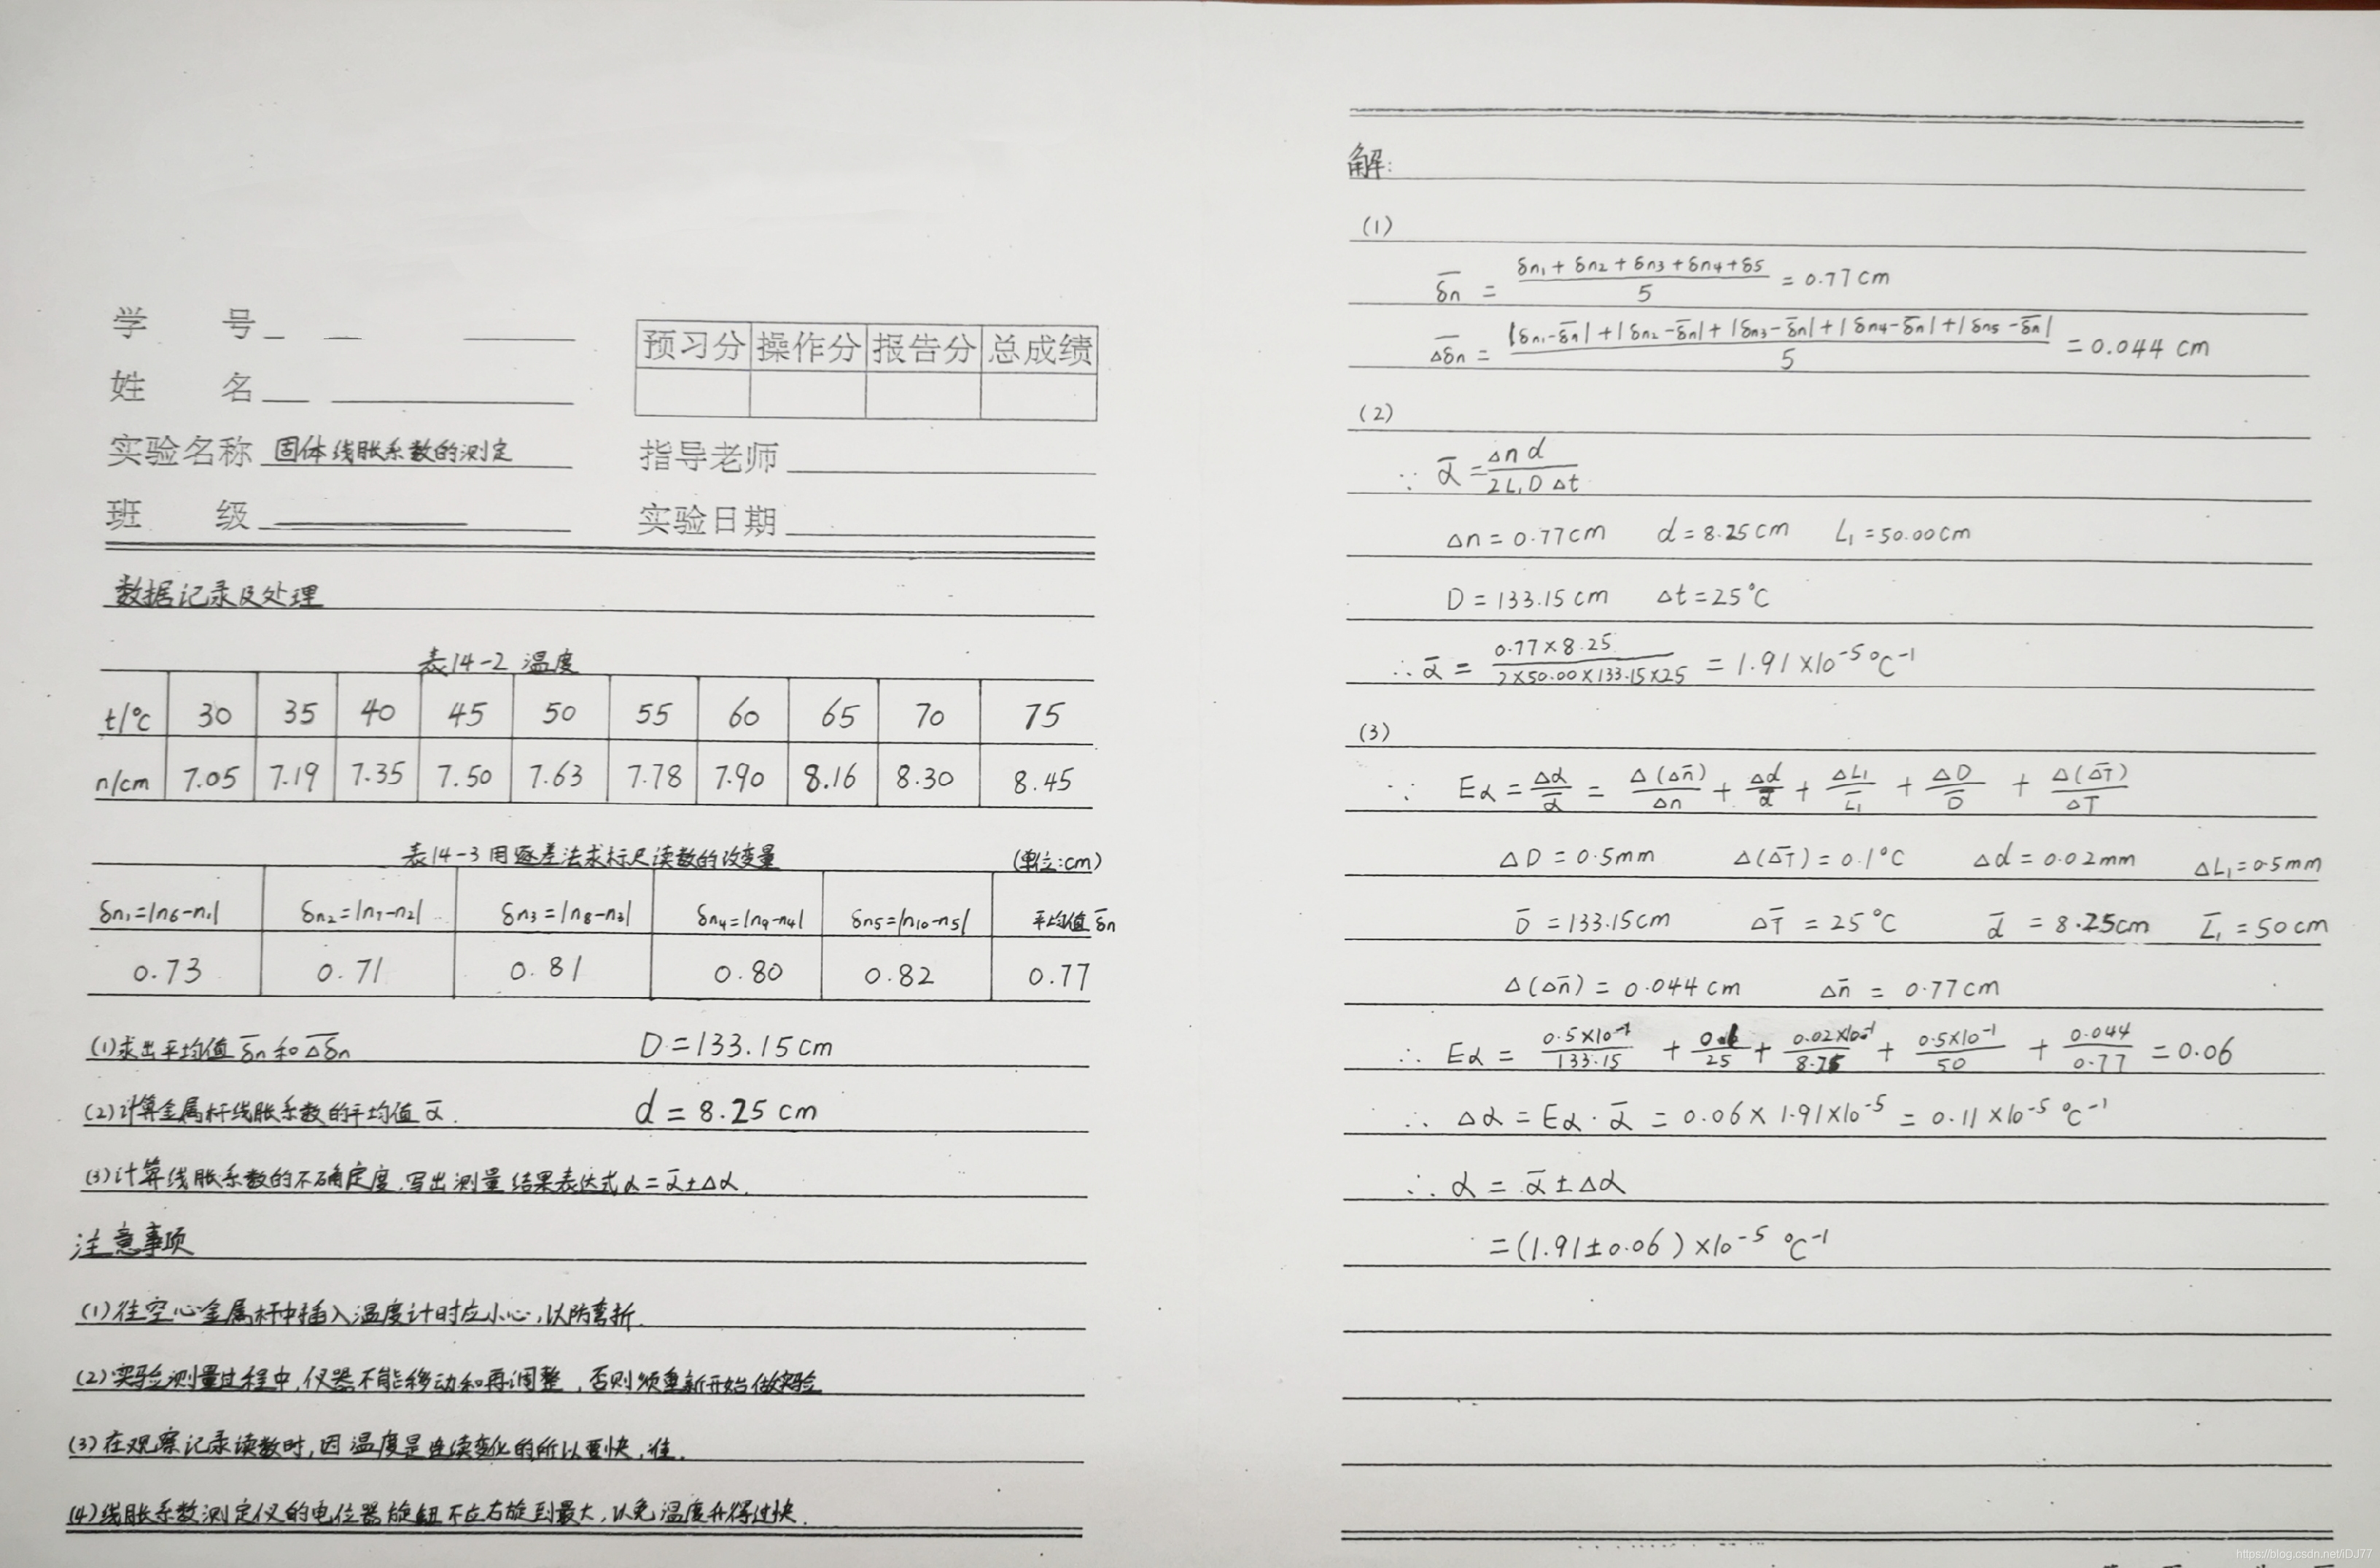 学 号
姓 名
实验名称 固体线胀系数的测定
班 级
预习分 操作分 报告分 总成绩
指导老师
实验日期
数据记录及处理
表14-2 温度
t/℃ 30 35 40 45 50 55 60 65 70 75
n/cm 7.05 7.19 7.35 7.50 7.63 7.78 7.90 8.16 8.30 8.45
表14-3 用逐差法求标尺读数的改变量 (单位:cm)
δn₁=|n₆-n₁| δn₂=|n₇-n₂| δn₃=|n₈-n₃| δn₄=|n₉-n₄| δn₅=|n₁₀-n₅| 平均值 δ̅n
0.73 0.71 0.81 0.80 0.82 0.77
(1)求出平均值 δ̅n 和 Δ̅δ̅n D=133.15cm
(2)计算金属杆线胀系数的平均值 α̅. d=8.25 cm
(3)计算线胀系数的不确定度,写出测量结果表达式 α=α̅±Δα.
注意事项
(1)往空心金属杆中插入温度计时应小心,以防弯折.
(2)实验测量过程中,仪器不能移动和再调整,否则须重新开始做实验
(3)在观察记录读数时,因温度是连续变化的所以要快,准.
(4)线胀系数测定仪的电位器旋钮不应右旋到最大,以免温度升得过快.
解:
(1)
δ̅n = (δn₁+δn₂+δn₃+δn₄+δ5)/5 = 0.77cm
Δ̅δ̅n = (|δn₁-δ̅n|+|δn₂-δ̅n|+|δn₃-δ̅n|+|δn₄-δ̅n|+|δn₅-δ̅n|)/5 = 0.044 cm
(2)
∵ α̅ = Δn d/2L₁D Δt
Δn=0.77cm d=8.25cm L₁=50.00cm
D=133.15cm Δt=25℃
∴ α̅ = 0.77×8.25/2×50.00×133.15×25 = 1.91×10⁻⁵℃⁻¹
(3)
∵ Eα = Δα/α̅ = Δ(Δn̅)/Δn + Δd/d̅ + ΔL₁/L̅₁ + ΔD/D̅ + Δ(ΔT̅)/ΔT
ΔD=0.5mm Δ(ΔT̅)=0.1℃ Δd=0.02mm ΔL₁=0.5mm
D̅=133.15cm ΔT̅=25℃ d̅=8.25cm L̅₁=50cm
Δ(Δn̅)=0.044cm Δn̅=0.77cm
∴ Eα = 0.5×10⁻¹/133.15 + 0.1/25 + 0.02×10⁻¹/8.25 + 0.5×10⁻¹/50 + 0.044/0.77 = 0.06
∴ Δα = Eα·α̅ = 0.06×1.91×10⁻⁵ = 0.11×10⁻⁵℃⁻¹
∴ α = α̅±Δα
=(1.91±0.06)×10⁻⁵ ℃⁻¹
https://blog.csdn.net/iDJ77